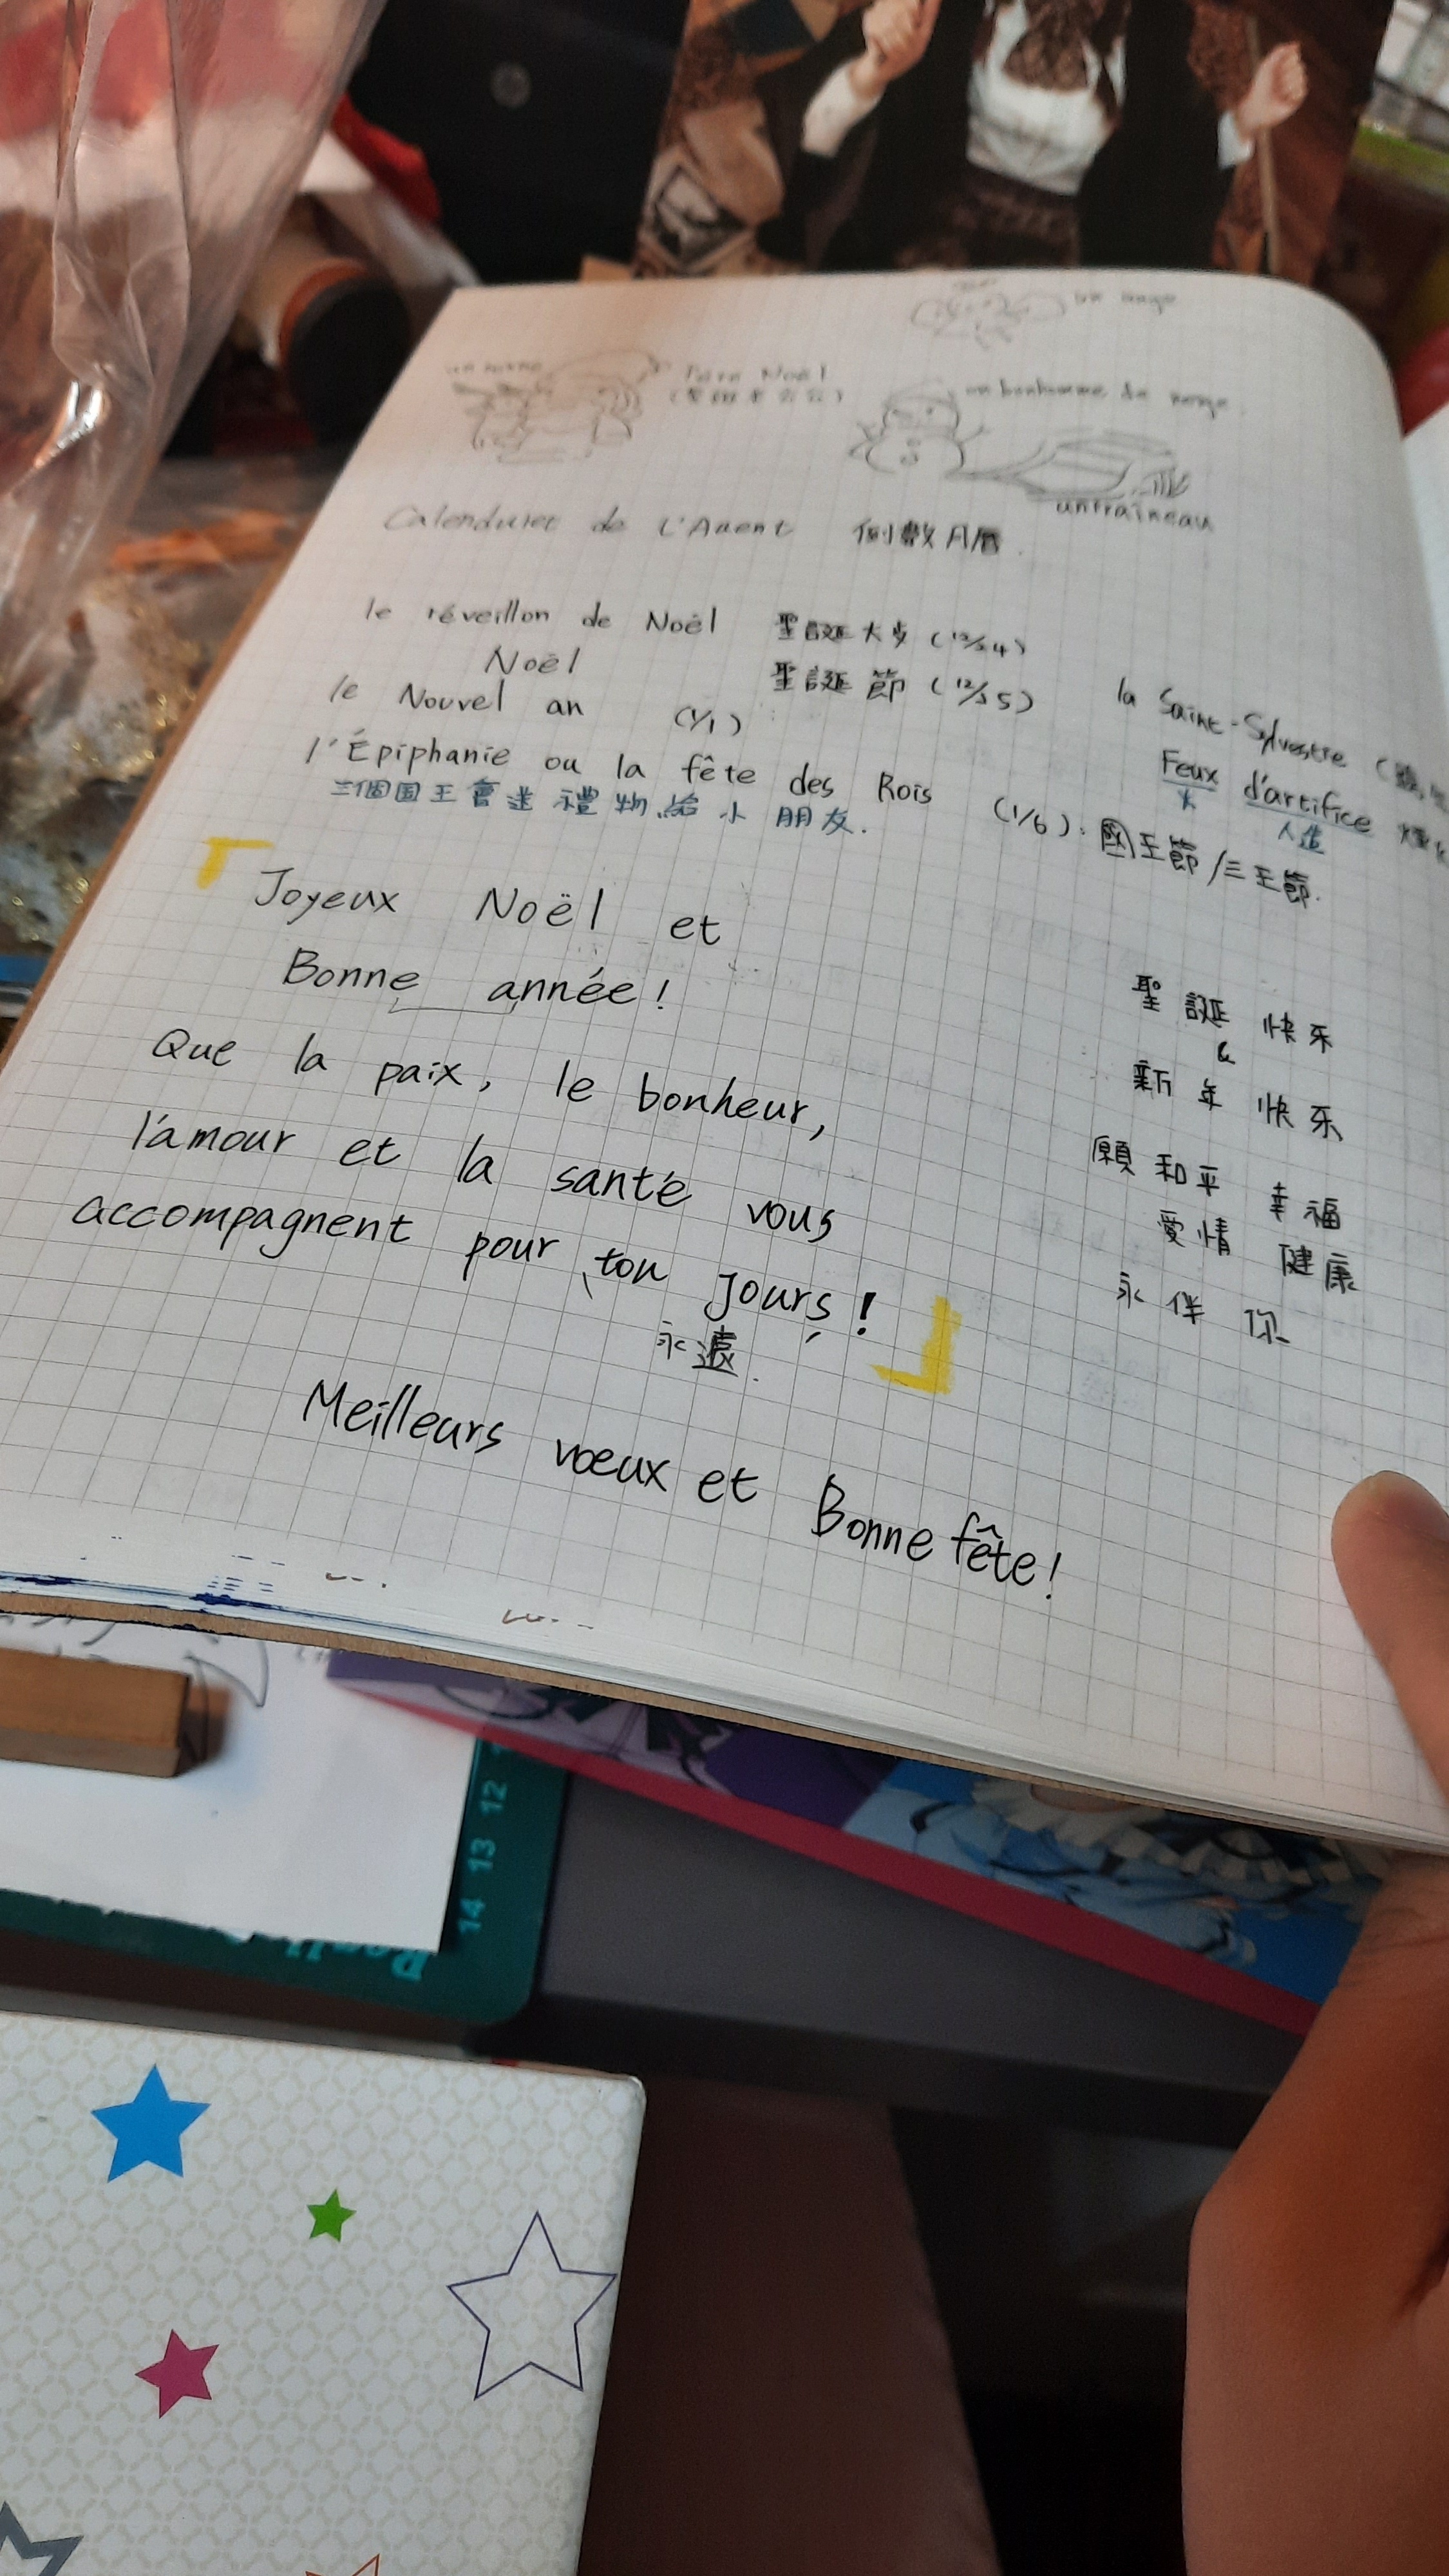 un ange
un renne
Père Noël
un bonhomme de neige
untraîneau
Calendrier de L'Avent 倒數月曆
le réveillon de Noël 聖誕大歺 (12/24)
Noël 聖誕節 (12/25)
le Nouvel an (1/1)
la Saint-Sylvestre
l'Épiphanie ou la fête des Rois (1/6). 國王節/三王節.
三個国王會送禮物給小朋友.
Feux d'artifice
火 人造
「Joyeux Noël et
Bonne année!
Que la paix, le bonheur,
l'amour et la santé vous
accompagnent pour tou jours!」
永遠.
聖誕快乐
&
新年快乐
願和平 幸福
愛情 健康
永伴你
Meilleurs vœux et Bonne fête!
12
13
14